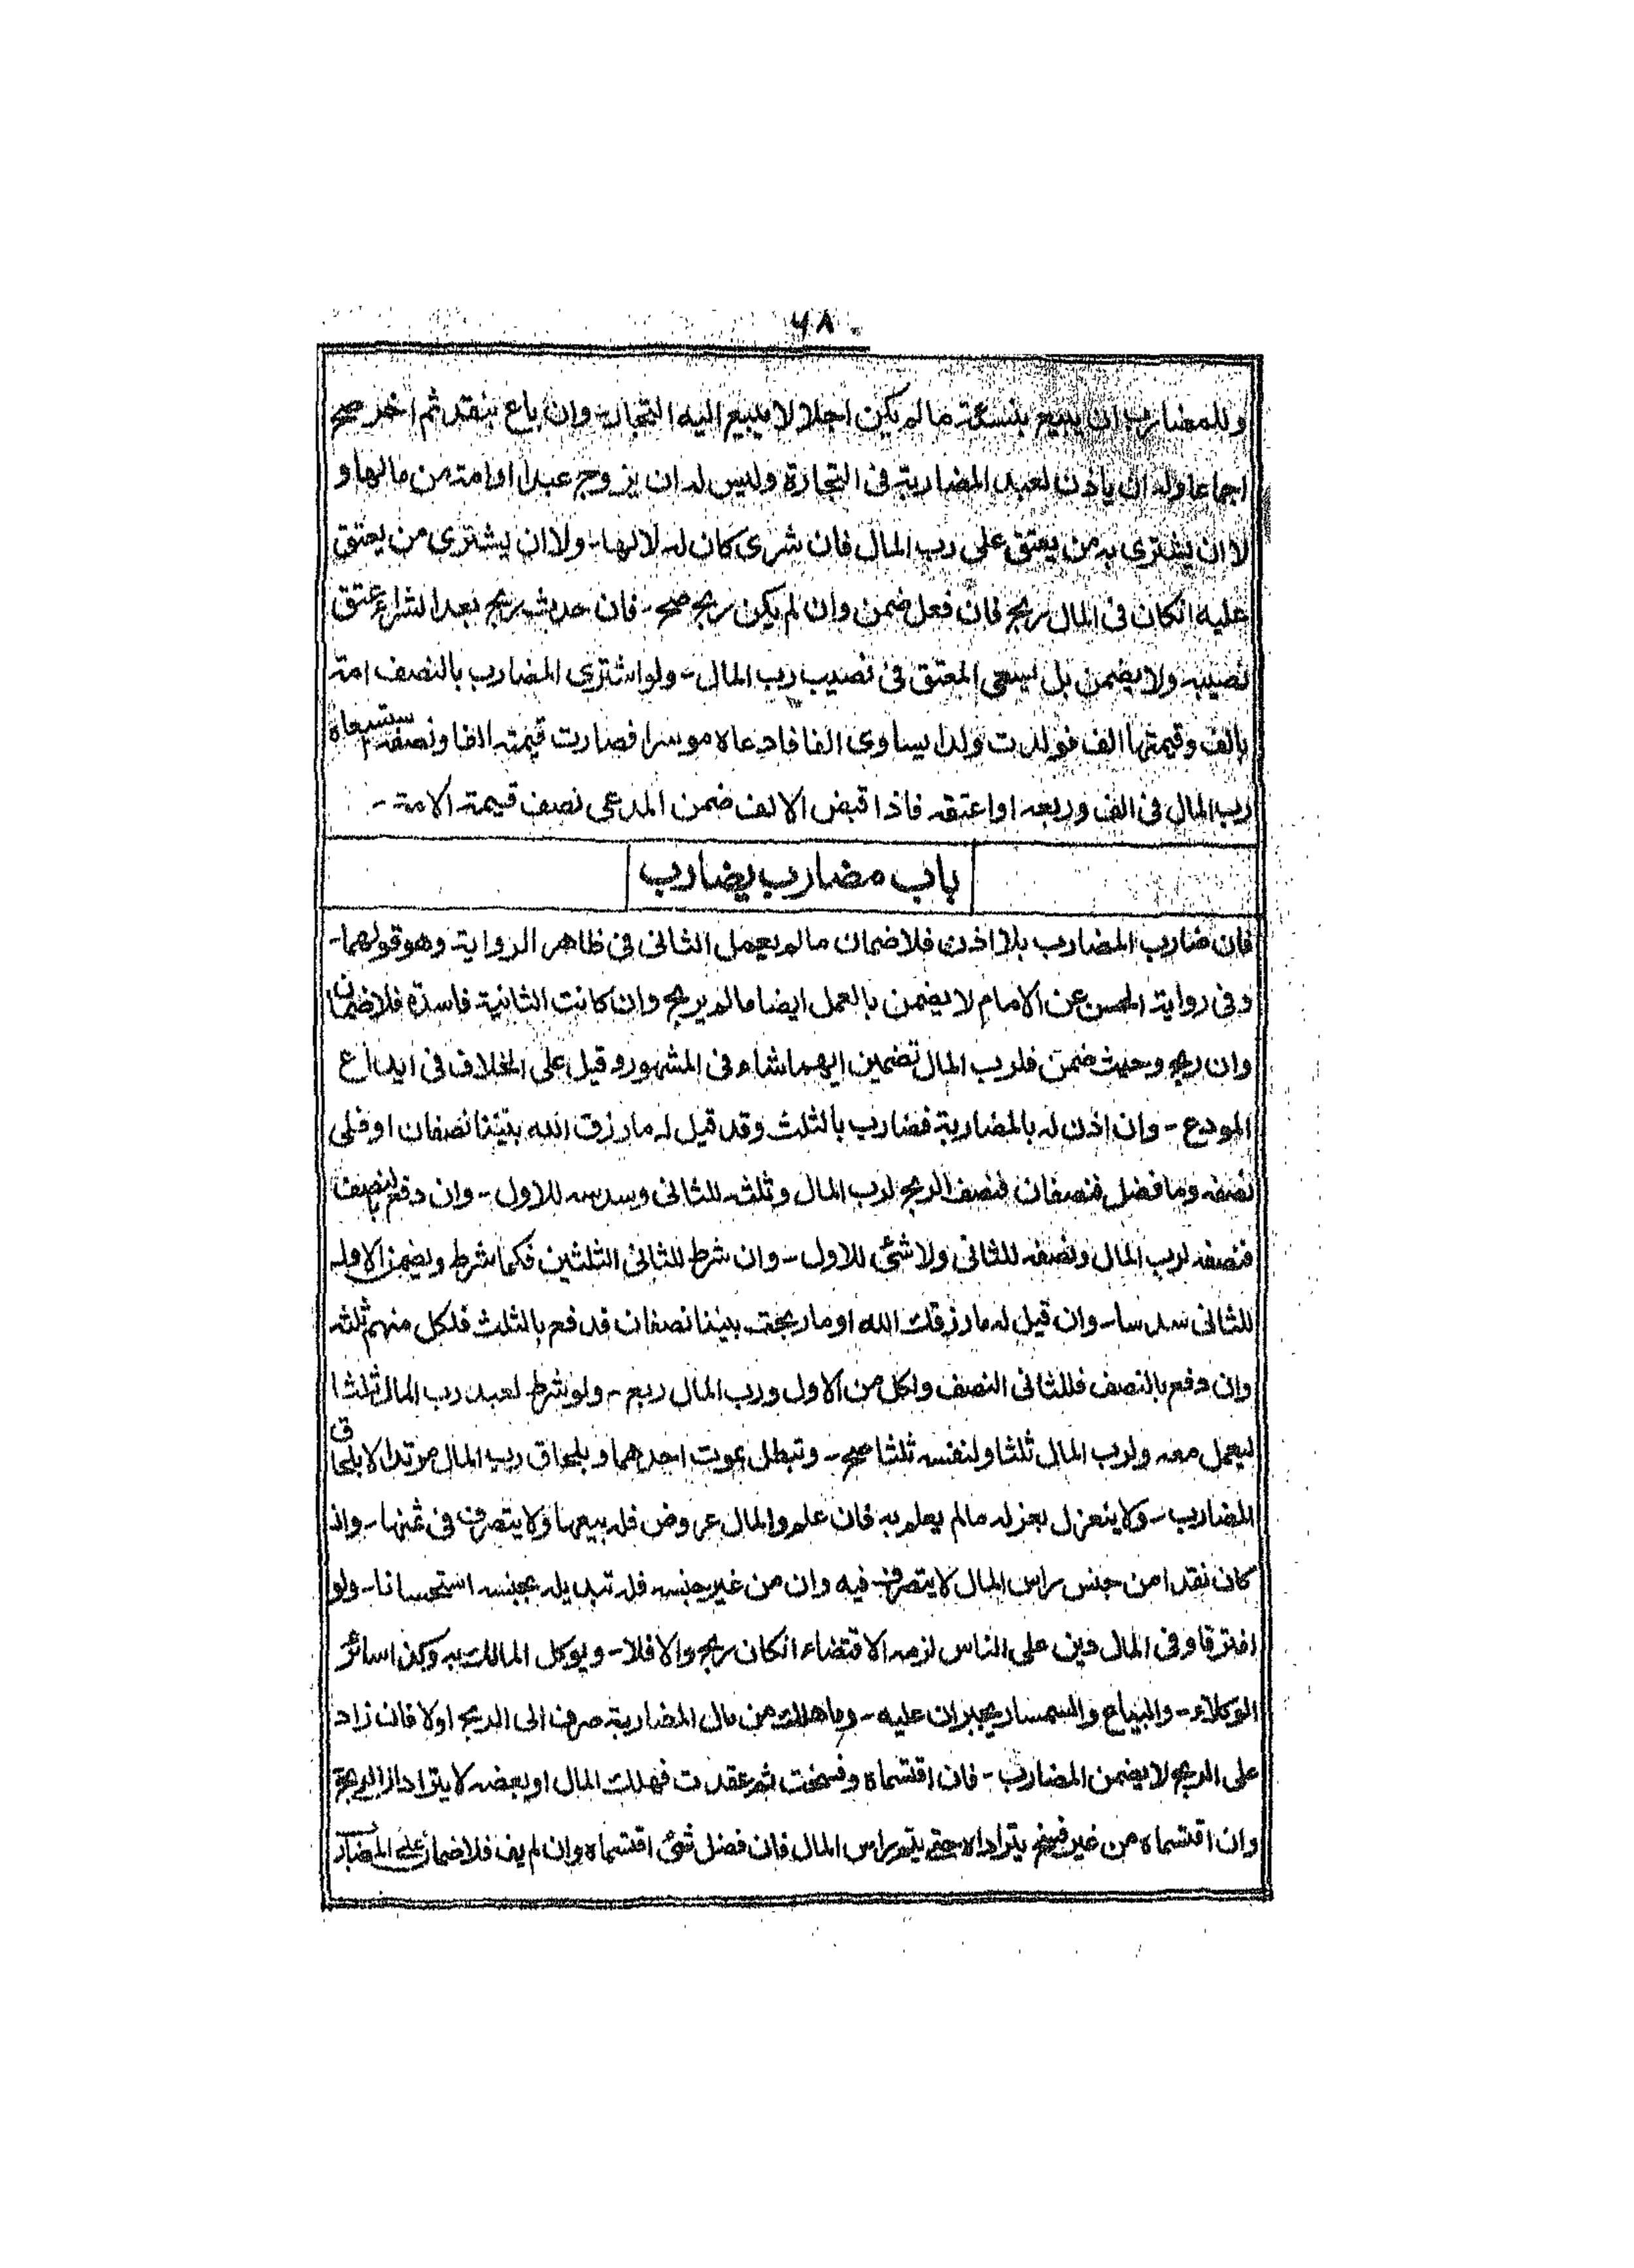 ٦٨
وللمضارب ان يبيع بنسئة ما لم يكن اجلا لا يبيع اليه التجار - وان باع بنقد ثم اخر صح
اجماعا وله ان ياذن لعبد المضاربة فى التجارة وليس له ان يزوج عبدا او امة من مالها و
لا ان يشترى به من يعتق على رب المال فان شرى كان له لا لها - ولا ان يشترى من يعتق
عليه انكان فى المال ربح فان فعل ضمن وان لم يكن ربح صح - فان حدث ربح بعد الشراء عتق
نصيبه ولا يضمن بل يسعى المعتق فى نصيب رب المال - ولو اشترى المضارب بالنصف امة
بالف وقيمتها الف فولدت ولدا يساوى الفا فادعاه موسرا فصارت قيمته الفا ونصفه استسعاه
رب المال فى الف وربعه او اعتقه فاذا قبض الالف ضمن المدعى نصف قيمة الامة -
باب مضارب يضارب
فان ضارب المضارب بلا اذن فلا ضمان ما لم يعمل الثانى فى ظاهر الرواية وهو قولهما -
وفى رواية الحسن عن الامام لا يضمن بالعمل ايضا ما لم يربح وان كانت الثانية فاسدة فلا ضمان
وان ربح وحيث ضمن فلرب المال تضمين ايهما شاء فى المشهور وقيل على الخلاف فى ايداع
المودع - وان اذن له بالمضاربة فضارب بالثلث وقد قيل له ما رزق الله بيننا نصفان او فلى
نصفه وما فضل فنصفان فنصف الربح لرب المال وثلثه للثانى وسدسه للاول - وان دفع بالنصف
فنصفه لرب المال ونصفه للثانى ولا شئ للاول - وان شرط للثانى الثلثين فكما شرط ويضمن الاول
للثانى سدسا - وان قيل له ما رزقك الله او ما ربحت بيننا نصفان فدفع بالثلث فلكل منهم ثلثه
وان دفع بالنصف فللثانى النصف ولكل من الاول ورب المال ربع - ولو شرط لعبد رب المال ثلثا
ليعمل معه ولرب المال ثلثا ولنفسه ثلثا صح - وتبطل بموت احدهما وبلحاق رب المال مرتدا لا بلحاق
المضارب - ولا ينعزل بعزله ما لم يعلم به فان علم والمال عروض فله بيعها ولا يتصرف فى ثمنها - وان
كان نقدا من جنس راس المال لا يتصرف فيه وان من غير جنسه فله تبديله بجنسه استحسانا - ولو
افترقا وفى المال دين على الناس لزمه الاقتضاء انكان ربح والا فلا - ويوكل المالك به وكذا سائر
الوكلاء - والبياع والسمسار يجبران عليه - وما هلك من مال المضاربة صرف الى الربح اولا فان زاد
على الربح لا يضمن المضارب - فان اقتسماه وفسخت ثم عقدت فهلك المال او بعضه لا يترادان الربح
وان اقتسماه من غير فسخ يتراداه حتى يتم راس المال فان فضل شئ اقتسماه وان لم يف فلا ضمان على المضارب